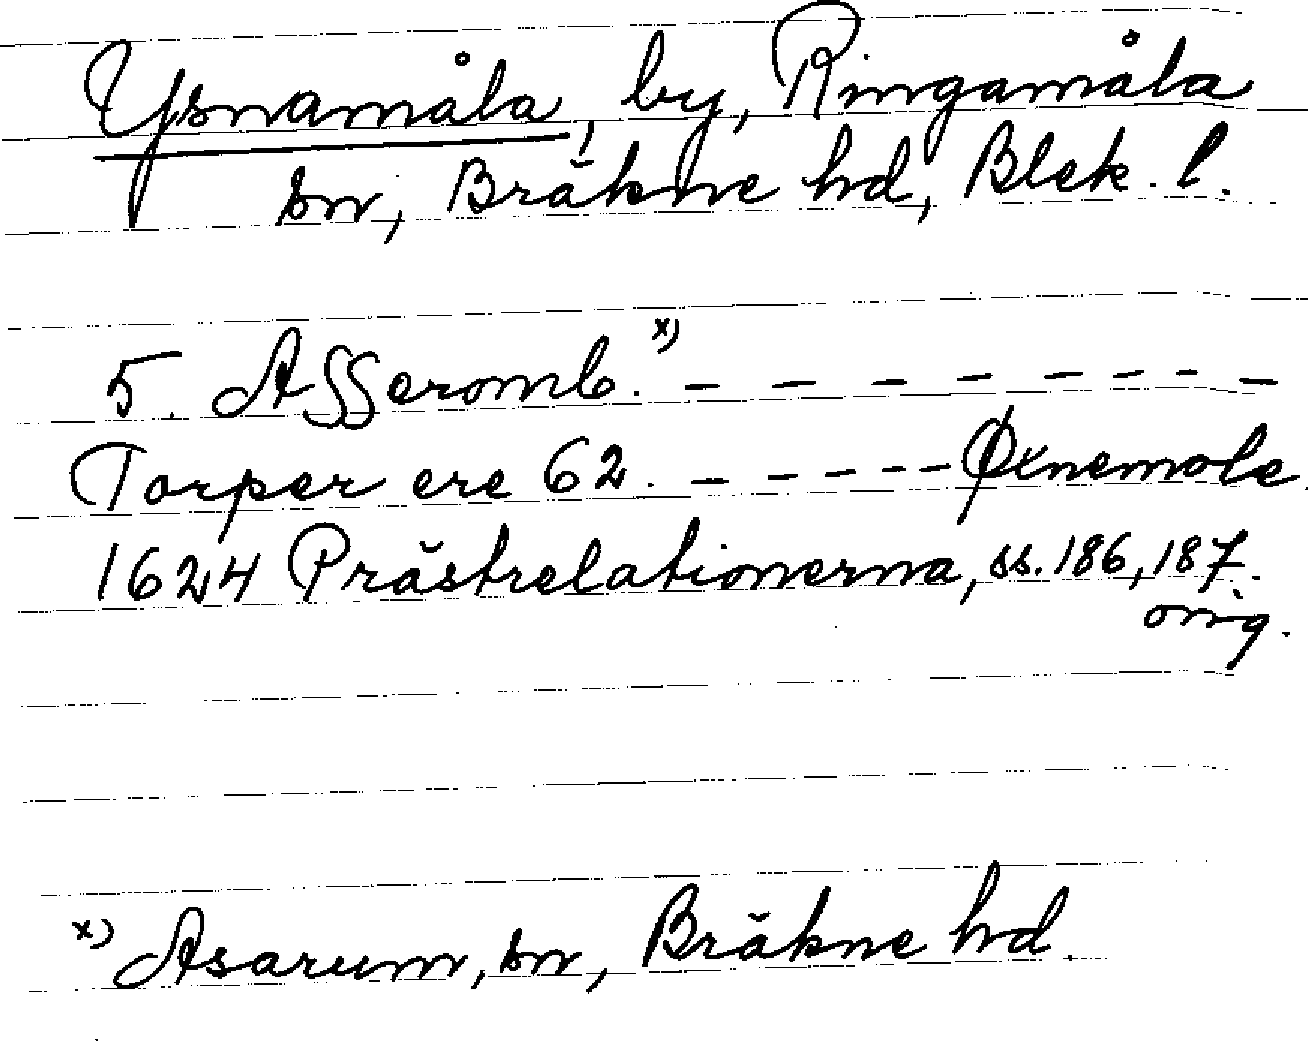 Ysnamåla, by, Ringamåla
sn, Bräkne hd, Blek. l.
5. Asseromb. x) - - - - - - - -
Torper ere 62. - - - - - Øxnemole.
1624 Prästrelationerna, ss. 186, 187.
orig.
x) Asarum, sn, Bräkne hd.